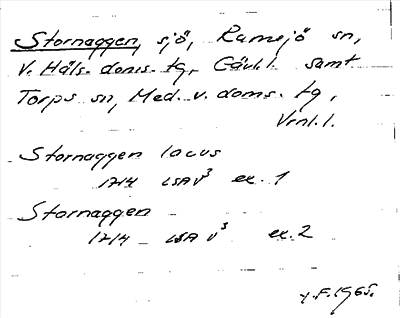 Stornaggen, sjö, Ramsjö sn,
V. Häls. doms. tg, Gävl.l. samt
Torps sn, Med. v. doms. tg,
Vrnl.l.
Stornaggen lacus
1714 LSA V³ ex. 1
Stornaggen
1714 LSA V³ ex. 2
F. 1965.